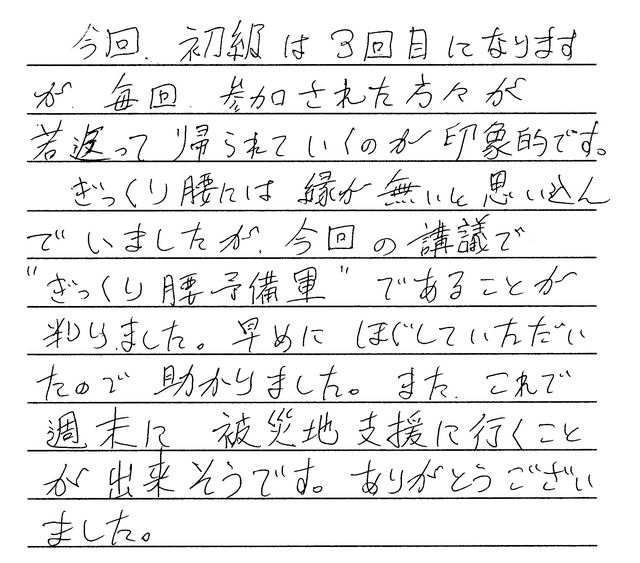 今回、初級は3回目になります
が、毎回、参加された方々が
若返って帰られていくのが印象的です。
ぎっくり腰には縁が無いと思い込ん
でいましたが、今回の講議で
"ぎっくり腰予備軍"であることが
判りました。早めにほぐしていただい
たので助かりました。また、これで
週末に被災地支援に行くこと
が出来そうです。ありがとうござい
ました。